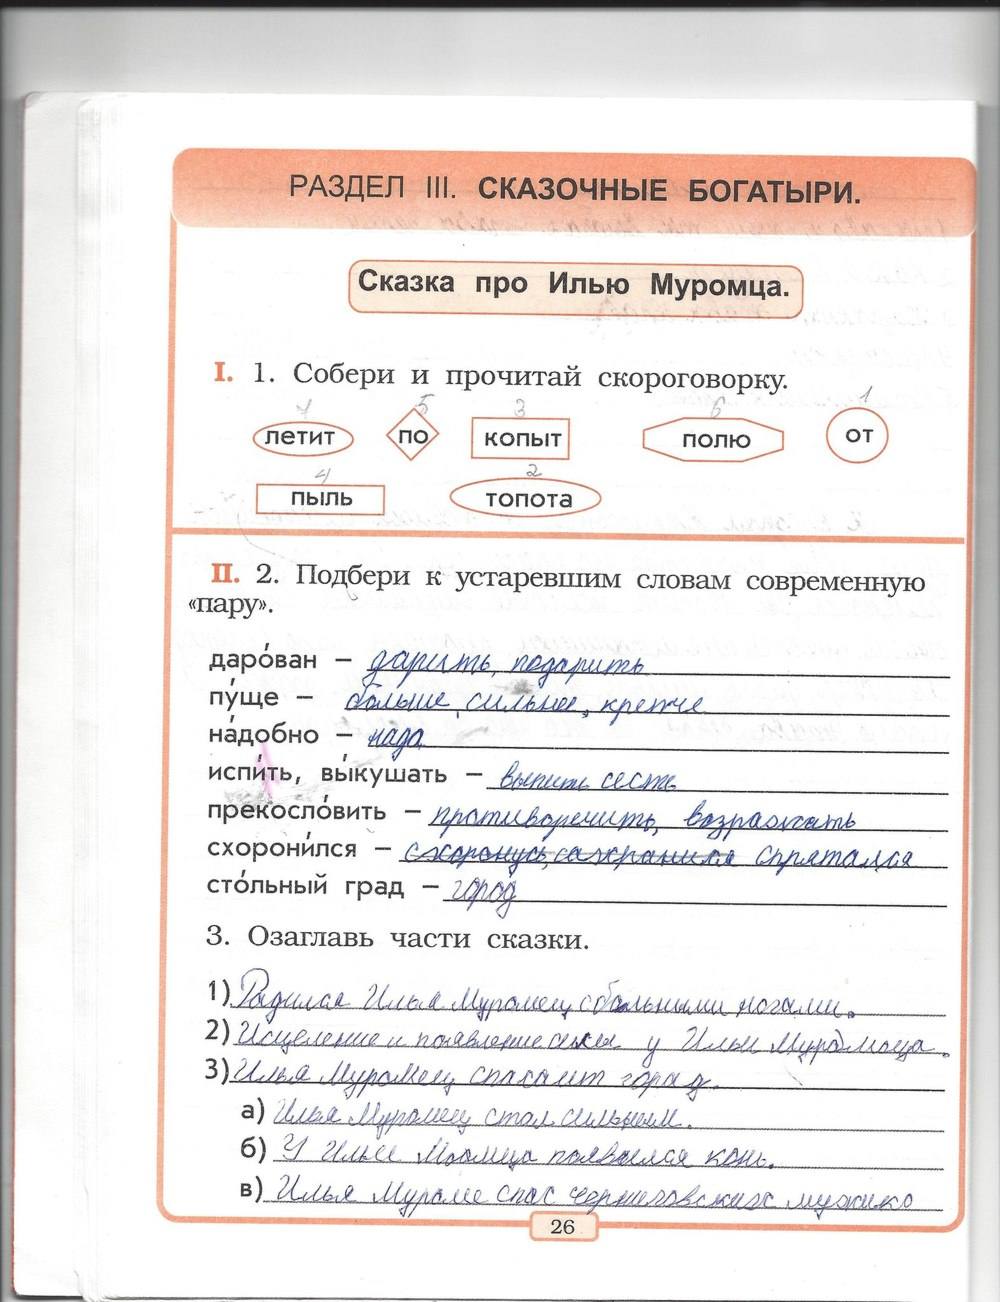 РАЗДЕЛ III. СКАЗОЧНЫЕ БОГАТЫРИ.
Сказка про Илью Муромца.
I. 1. Собери и прочитай скороговорку.
7 5 3 6 1
летит по копыт полю от
4 2
пыль топота
II. 2. Подбери к устаревшим словам современную
«пару».
даро́ван – дарить, подарить
пу́ще – больше, сильнее, крепче
на́добно – надо
испи́ть, вы́кушать – выпить сесть
прекосло́вить – противоречить, возражать
схорони́лся – схоронусь, сахранился спрятался
сто́льный град – город
3. Озаглавь части сказки.
1) Радился Илья Муромец с большими ногами.
2) Исцеление и появление силы у Ильи Муромца.
3) Илья Муромец спасаит город.
а) Илья Муромец стал сильным.
б) У Ильи появился конь.
в) Илья Муроме спас черниговских мужико
26